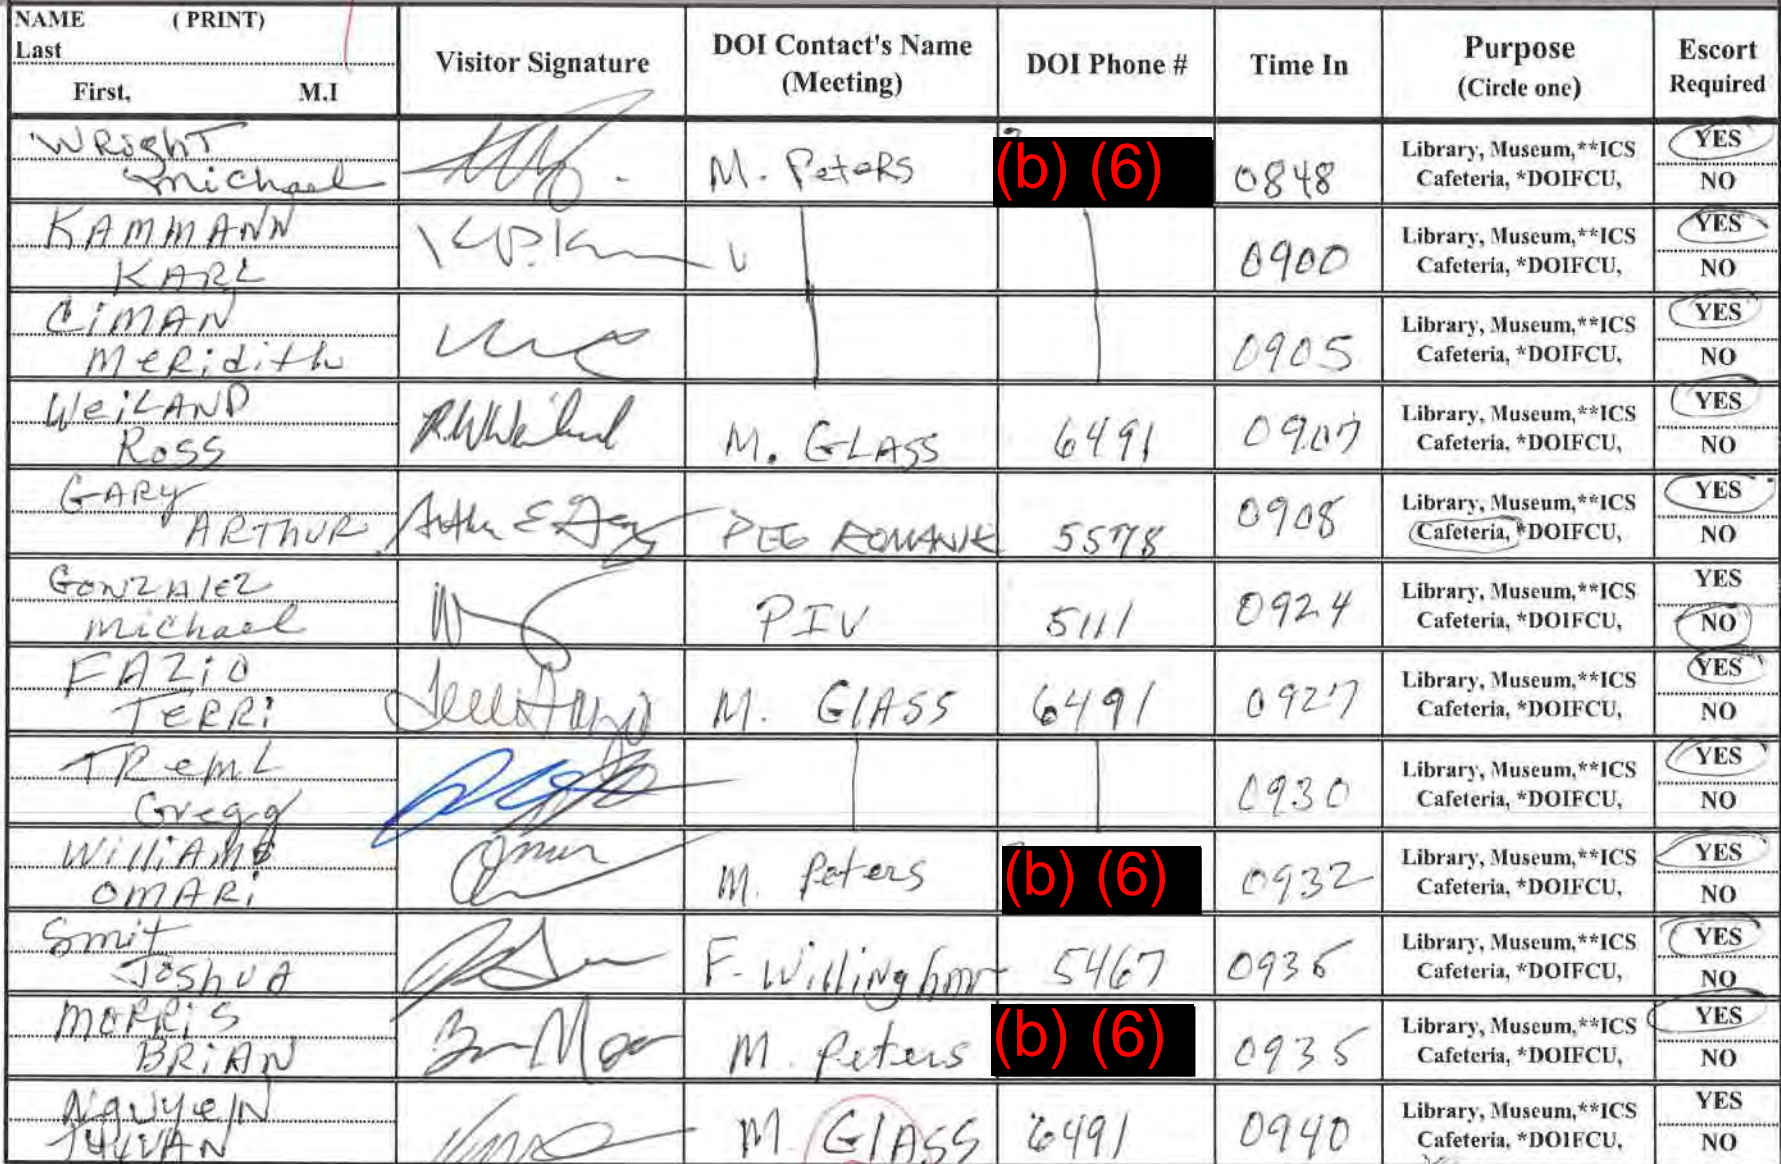 NAME ( PRINT)
Last
First, M.I
Visitor Signature
DOI Contact's Name
(Meeting)
DOI Phone #
Time In
Purpose
(Circle one)
Escort
Required
WRighT
michael
M. PeteRs
(b) (6)
0848
Library, Museum,**ICS
Cafeteria, *DOIFCU,
YES
NO
KAMMANN
KARL
0900
Library, Museum,**ICS
Cafeteria, *DOIFCU,
YES
NO
CiMAN
MeRidith
0905
Library, Museum,**ICS
Cafeteria, *DOIFCU,
YES
NO
WeiLAND
Ross
M. GLASS
6491
0907
Library, Museum,**ICS
Cafeteria, *DOIFCU,
YES
NO
GARy
ARTHUR
PEG ROMANIK
5578
0908
Library, Museum,**ICS
Cafeteria, *DOIFCU,
YES
NO
GONZAlEZ
michael
PIV
5111
0924
Library, Museum,**ICS
Cafeteria, *DOIFCU,
YES
NO
FAZiO
TERRi
M. GlASS
6491
0927
Library, Museum,**ICS
Cafeteria, *DOIFCU,
YES
NO
TRemL
Gregg
0930
Library, Museum,**ICS
Cafeteria, *DOIFCU,
YES
NO
WilliAMS
OMARi
M. Peters
(b) (6)
0932
Library, Museum,**ICS
Cafeteria, *DOIFCU,
YES
NO
Smit
JoshuA
F. Willingham
5467
Library, Museum,**ICS
Cafeteria, *DOIFCU,
YES
NO
MORRiS
BRiAN
M. Peters
(b) (6)
0935
Library, Museum,**ICS
Cafeteria, *DOIFCU,
YES
NO
NguyeN
M. GlASS
6491
0940
Library, Museum,**ICS
Cafeteria, *DOIFCU,
YES
NO